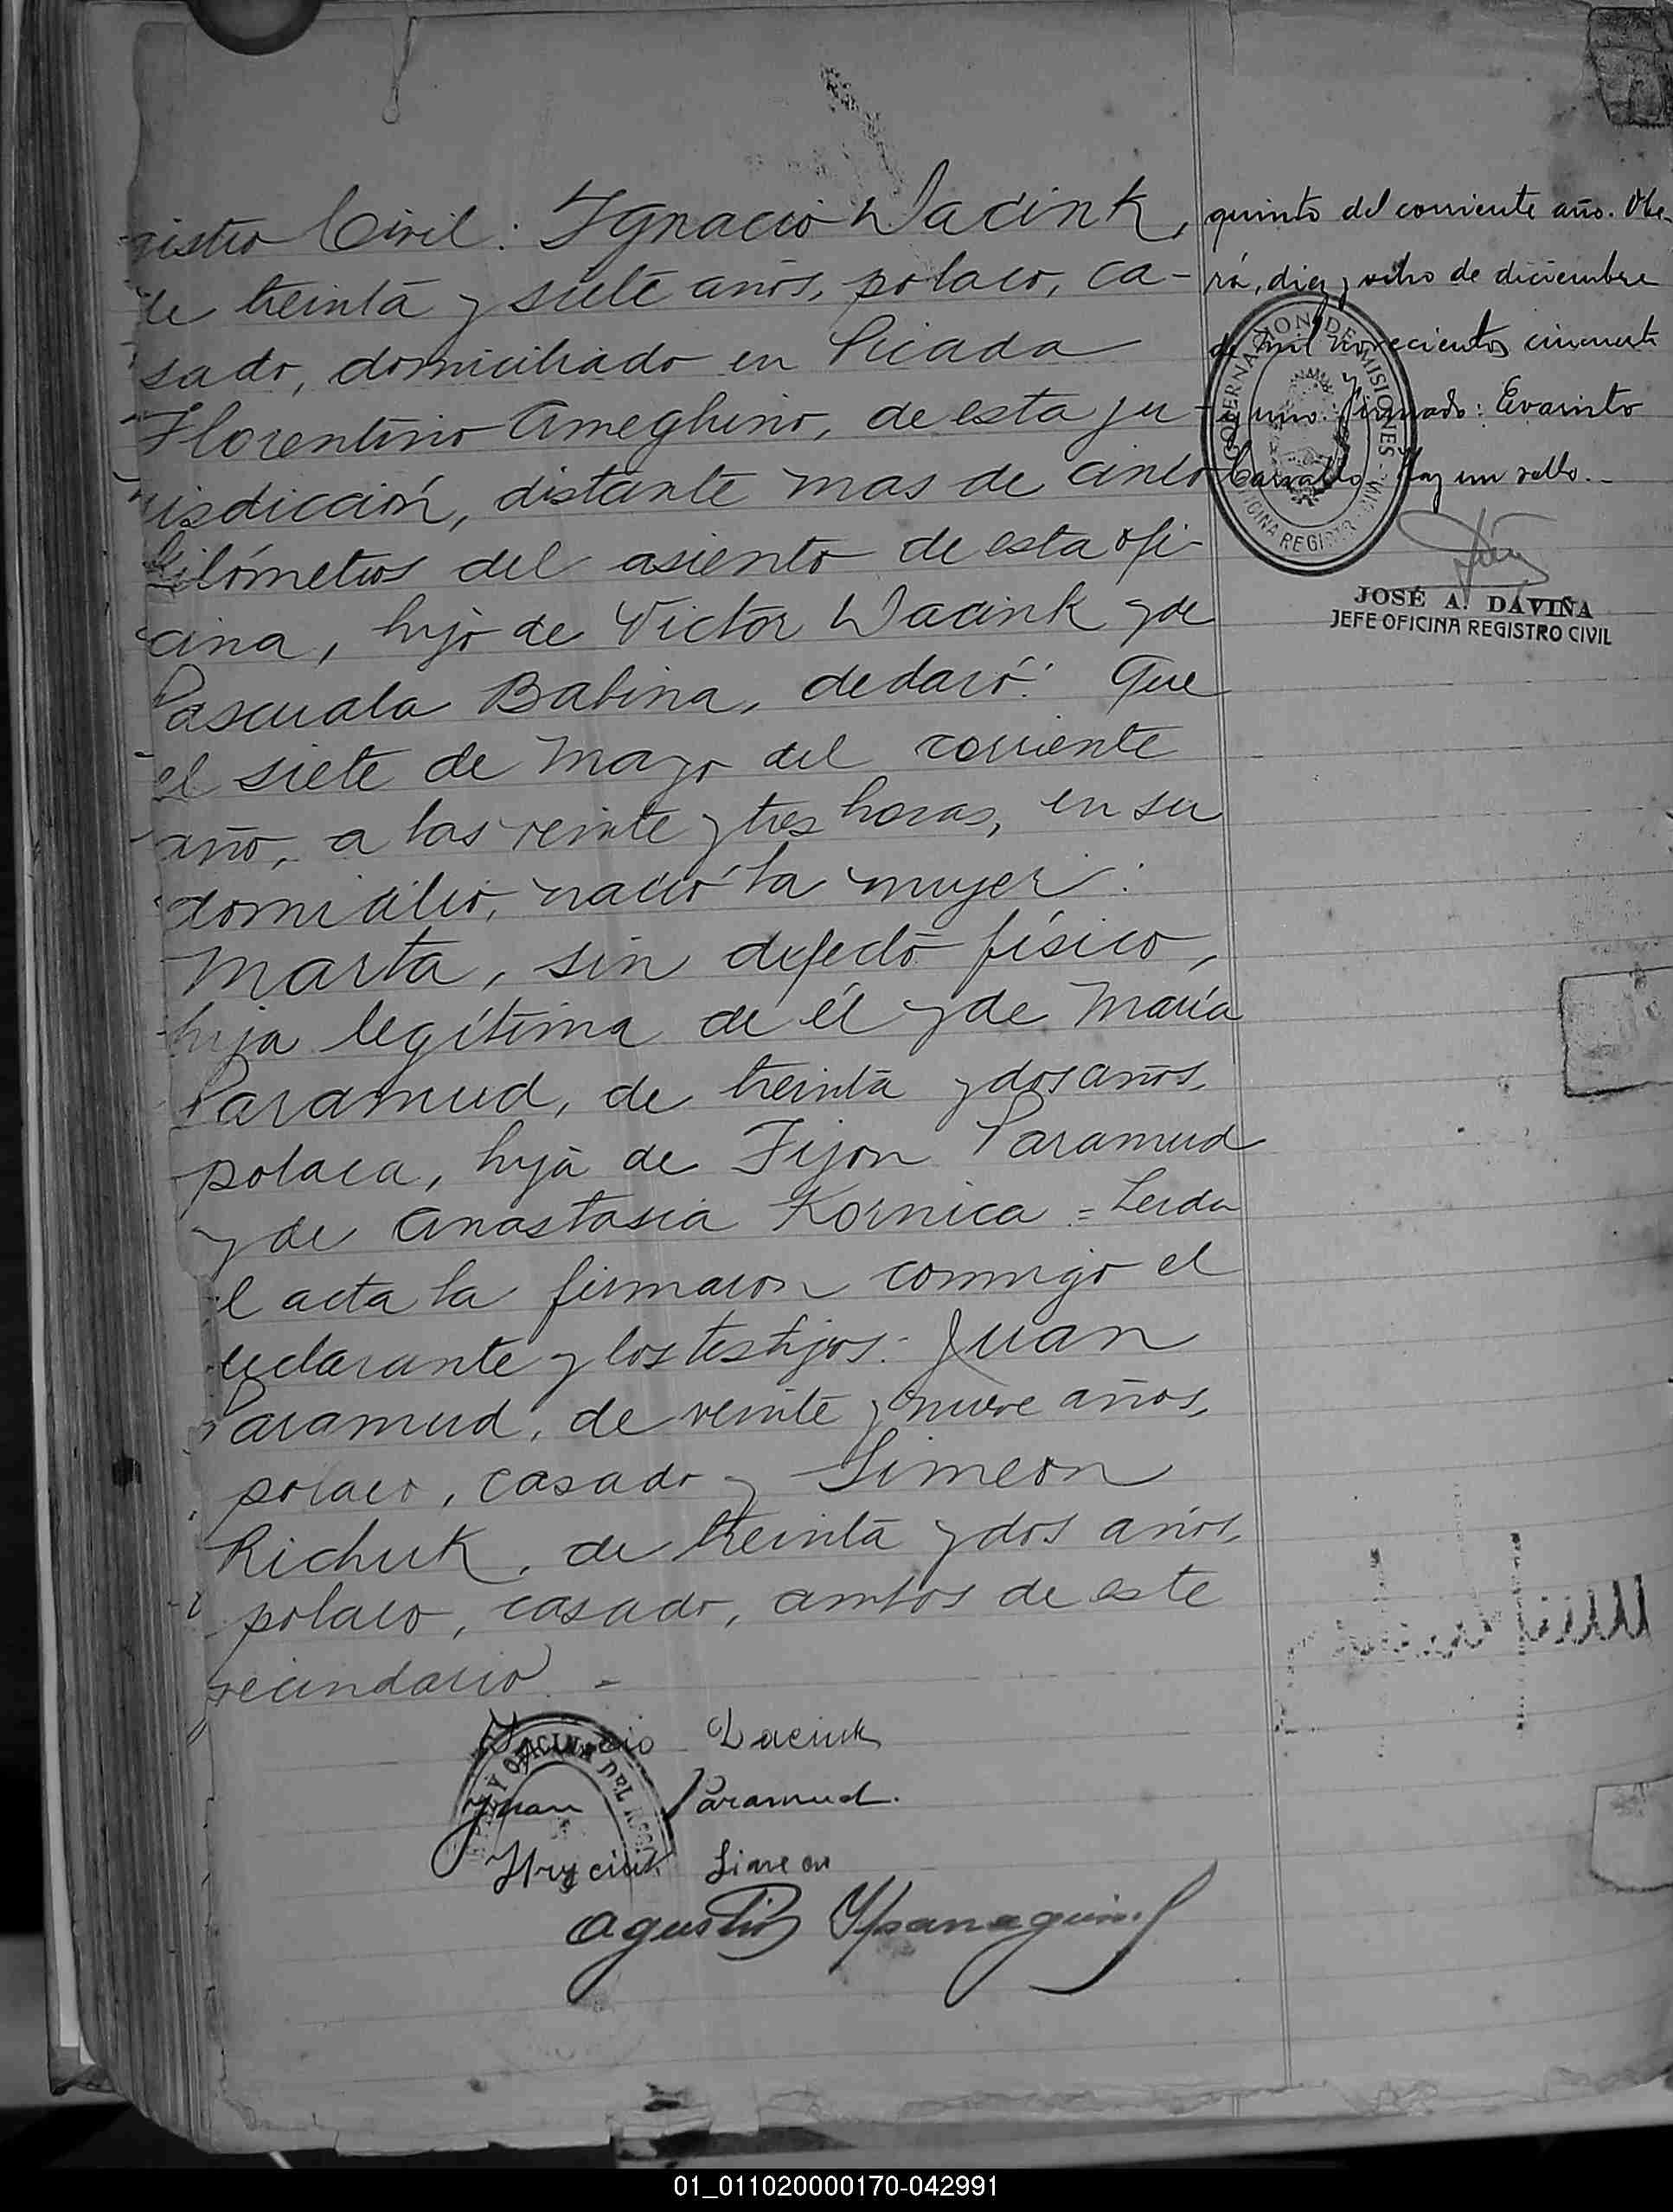 gistro Civil: Ignacio Wacink,
de treinta y siete años, polaco, ca-
sado, domiciliado en Picada
Florentino Ameghino, de esta ju-
risdicción, distante mas de cinco
kilómetros del asiento de esta ofi-
cina, hijo de Victor Wacink y de
Pascuala Babina, declaró: Que
el siete de Mayo del corriente
año, a las veinte y tres horas, en su
domicilio, nació la mujer:
Marta, sin defecto físico,
hija legítima de él y de María
Paramud, de treinta y dos años,
polaca, hija de Fijon Paramud
y de Anastasia Kornica = Leida
el acta la firmaron conmigo el
declarante y los testigos: Juan
Paramud, de veinte y nueve años,
polaco, casado y Simeon
Richuk, de treinta y dos años,
polaco, casado, ambos de este
vecindario. -
Ignacio Waciuk
Juan Paramud.
Hryciuk Simeon
Agustin
quinto del corriente año. Obe-
rá, diez y ocho de diciembre
de mil novecientos cincuenta
y uno. Firmado: Evaristo
Carvallo. Hay un sello.-
GOBERNACION DE MISIONES
OFICINA REGISTRO CIVIL
JOSÉ A. DAVIÑA
JEFE OFICINA REGISTRO CIVIL
01_011020000170-042991